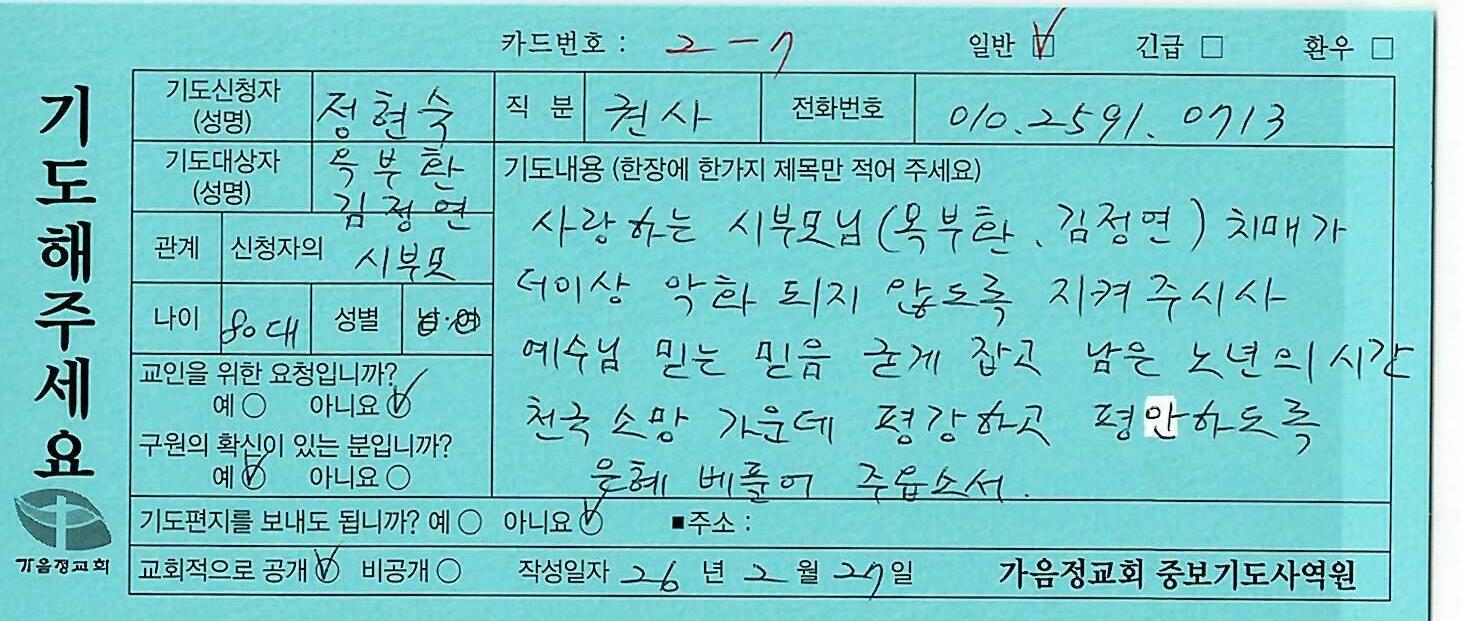 카드번호 : 2-7 일반 ☑ 긴급 □ 환우 □
기도해주세요
기도신청자 (성명) 정현숙 직 분 권사 전화번호 010.2591.0713
기도대상자 (성명) 옥부환 김정연
관계 신청자의 시부모
나이 80대 성별 남·여
교인을 위한 요청입니까?
예 ○ 아니요 ☑
구원의 확신이 있는 분입니까?
예 ☑ 아니요 ○
기도내용 (한장에 한가지 제목만 적어 주세요)
사랑하는 시부모님(옥부환、김정연) 치매가
더이상 악화 되지 않도록 지켜주시사
예수님 믿는 믿음 굳게 잡고 남은 노년의 시간
천국소망 가운데 평강하고 평안하도록
은혜 베풀어 주옵소서.
기도편지를 보내도 됩니까? 예 ○ 아니요 ☑ ■주소 :
교회적으로 공개 ☑ 비공개 ○ 작성일자 26 년 2 월 27일 가음정교회 중보기도사역원
가음정교회